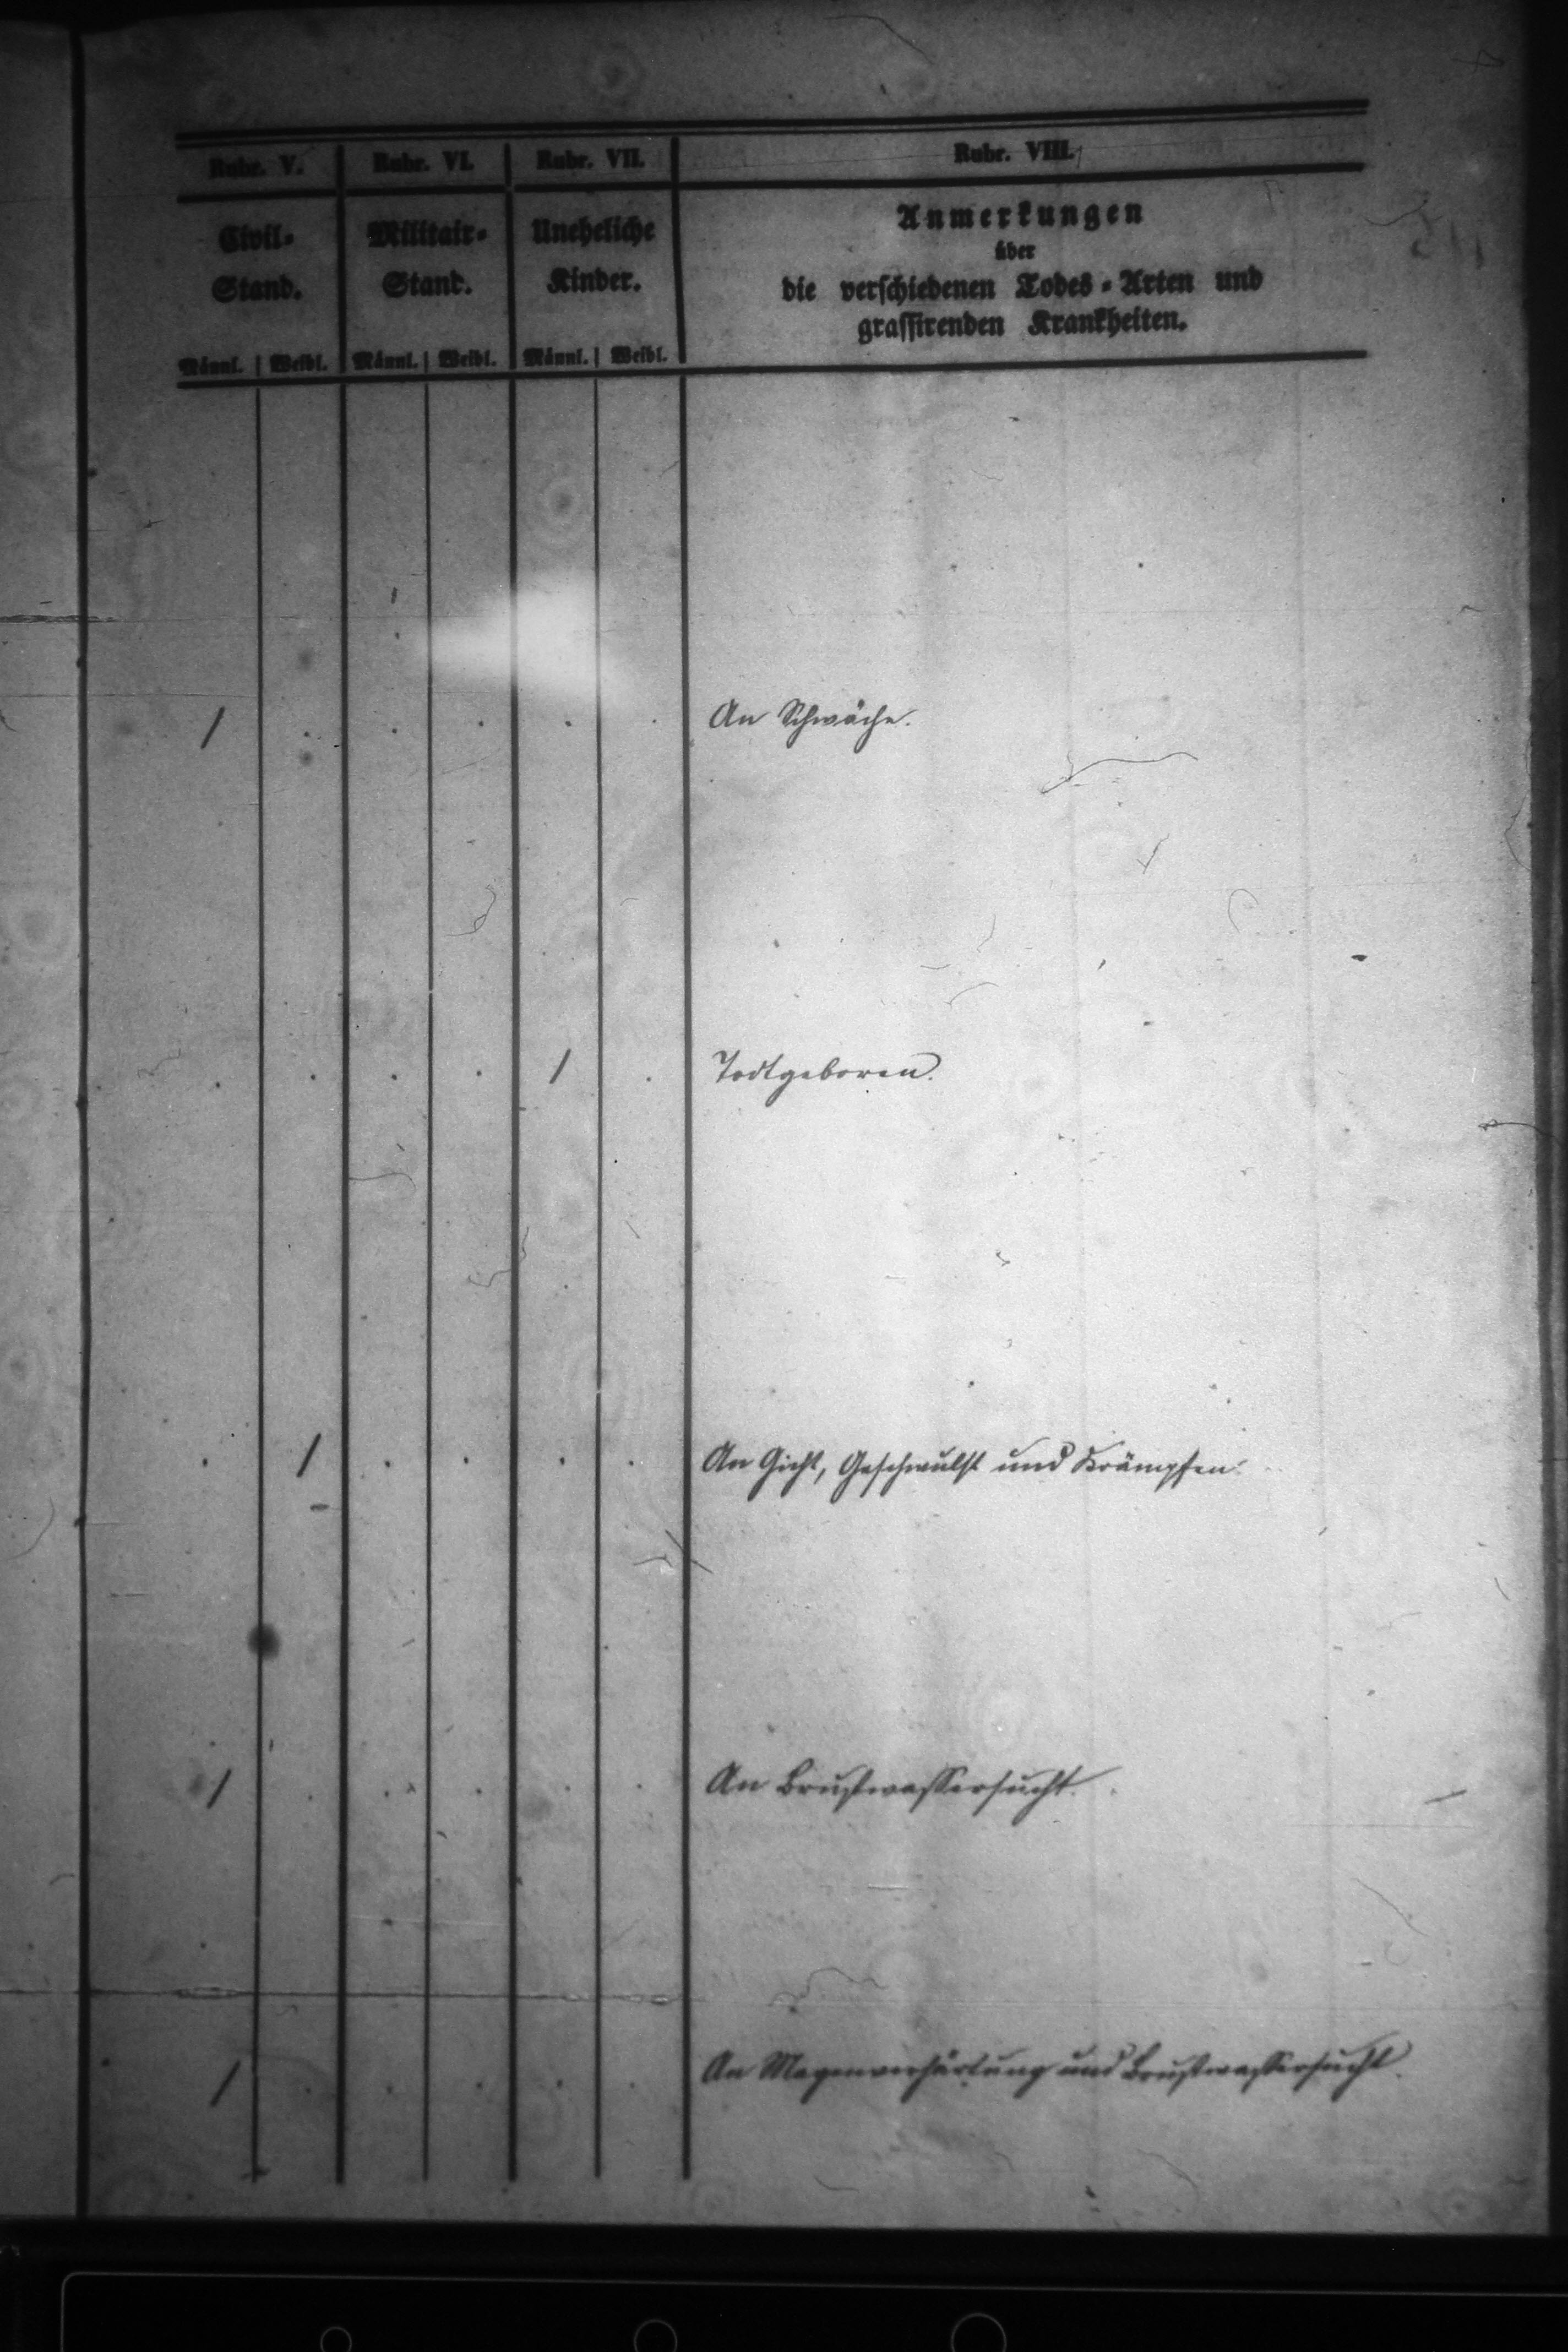 Rubr. V. Rubr. VI. Rubr. VII. Rubr. VIII.
Civil- Militair- Uneheliche Anmerkungen
Stand. Stand. Kinder. über
die verschiedenen Todes-Arten und
grassirenden Krankheiten.
Männl. Weibl. Männl. Weibl. Männl. Weibl.
/ . . . . . An Schwäche.
. . . . / . Todtgeboren.
. / . . . . An Gicht, Geschwulst und Krämpfen.
/ . . . . . An Brustwassersucht.
/ . . . . . An Magenverhärtung und Brustwassersucht.